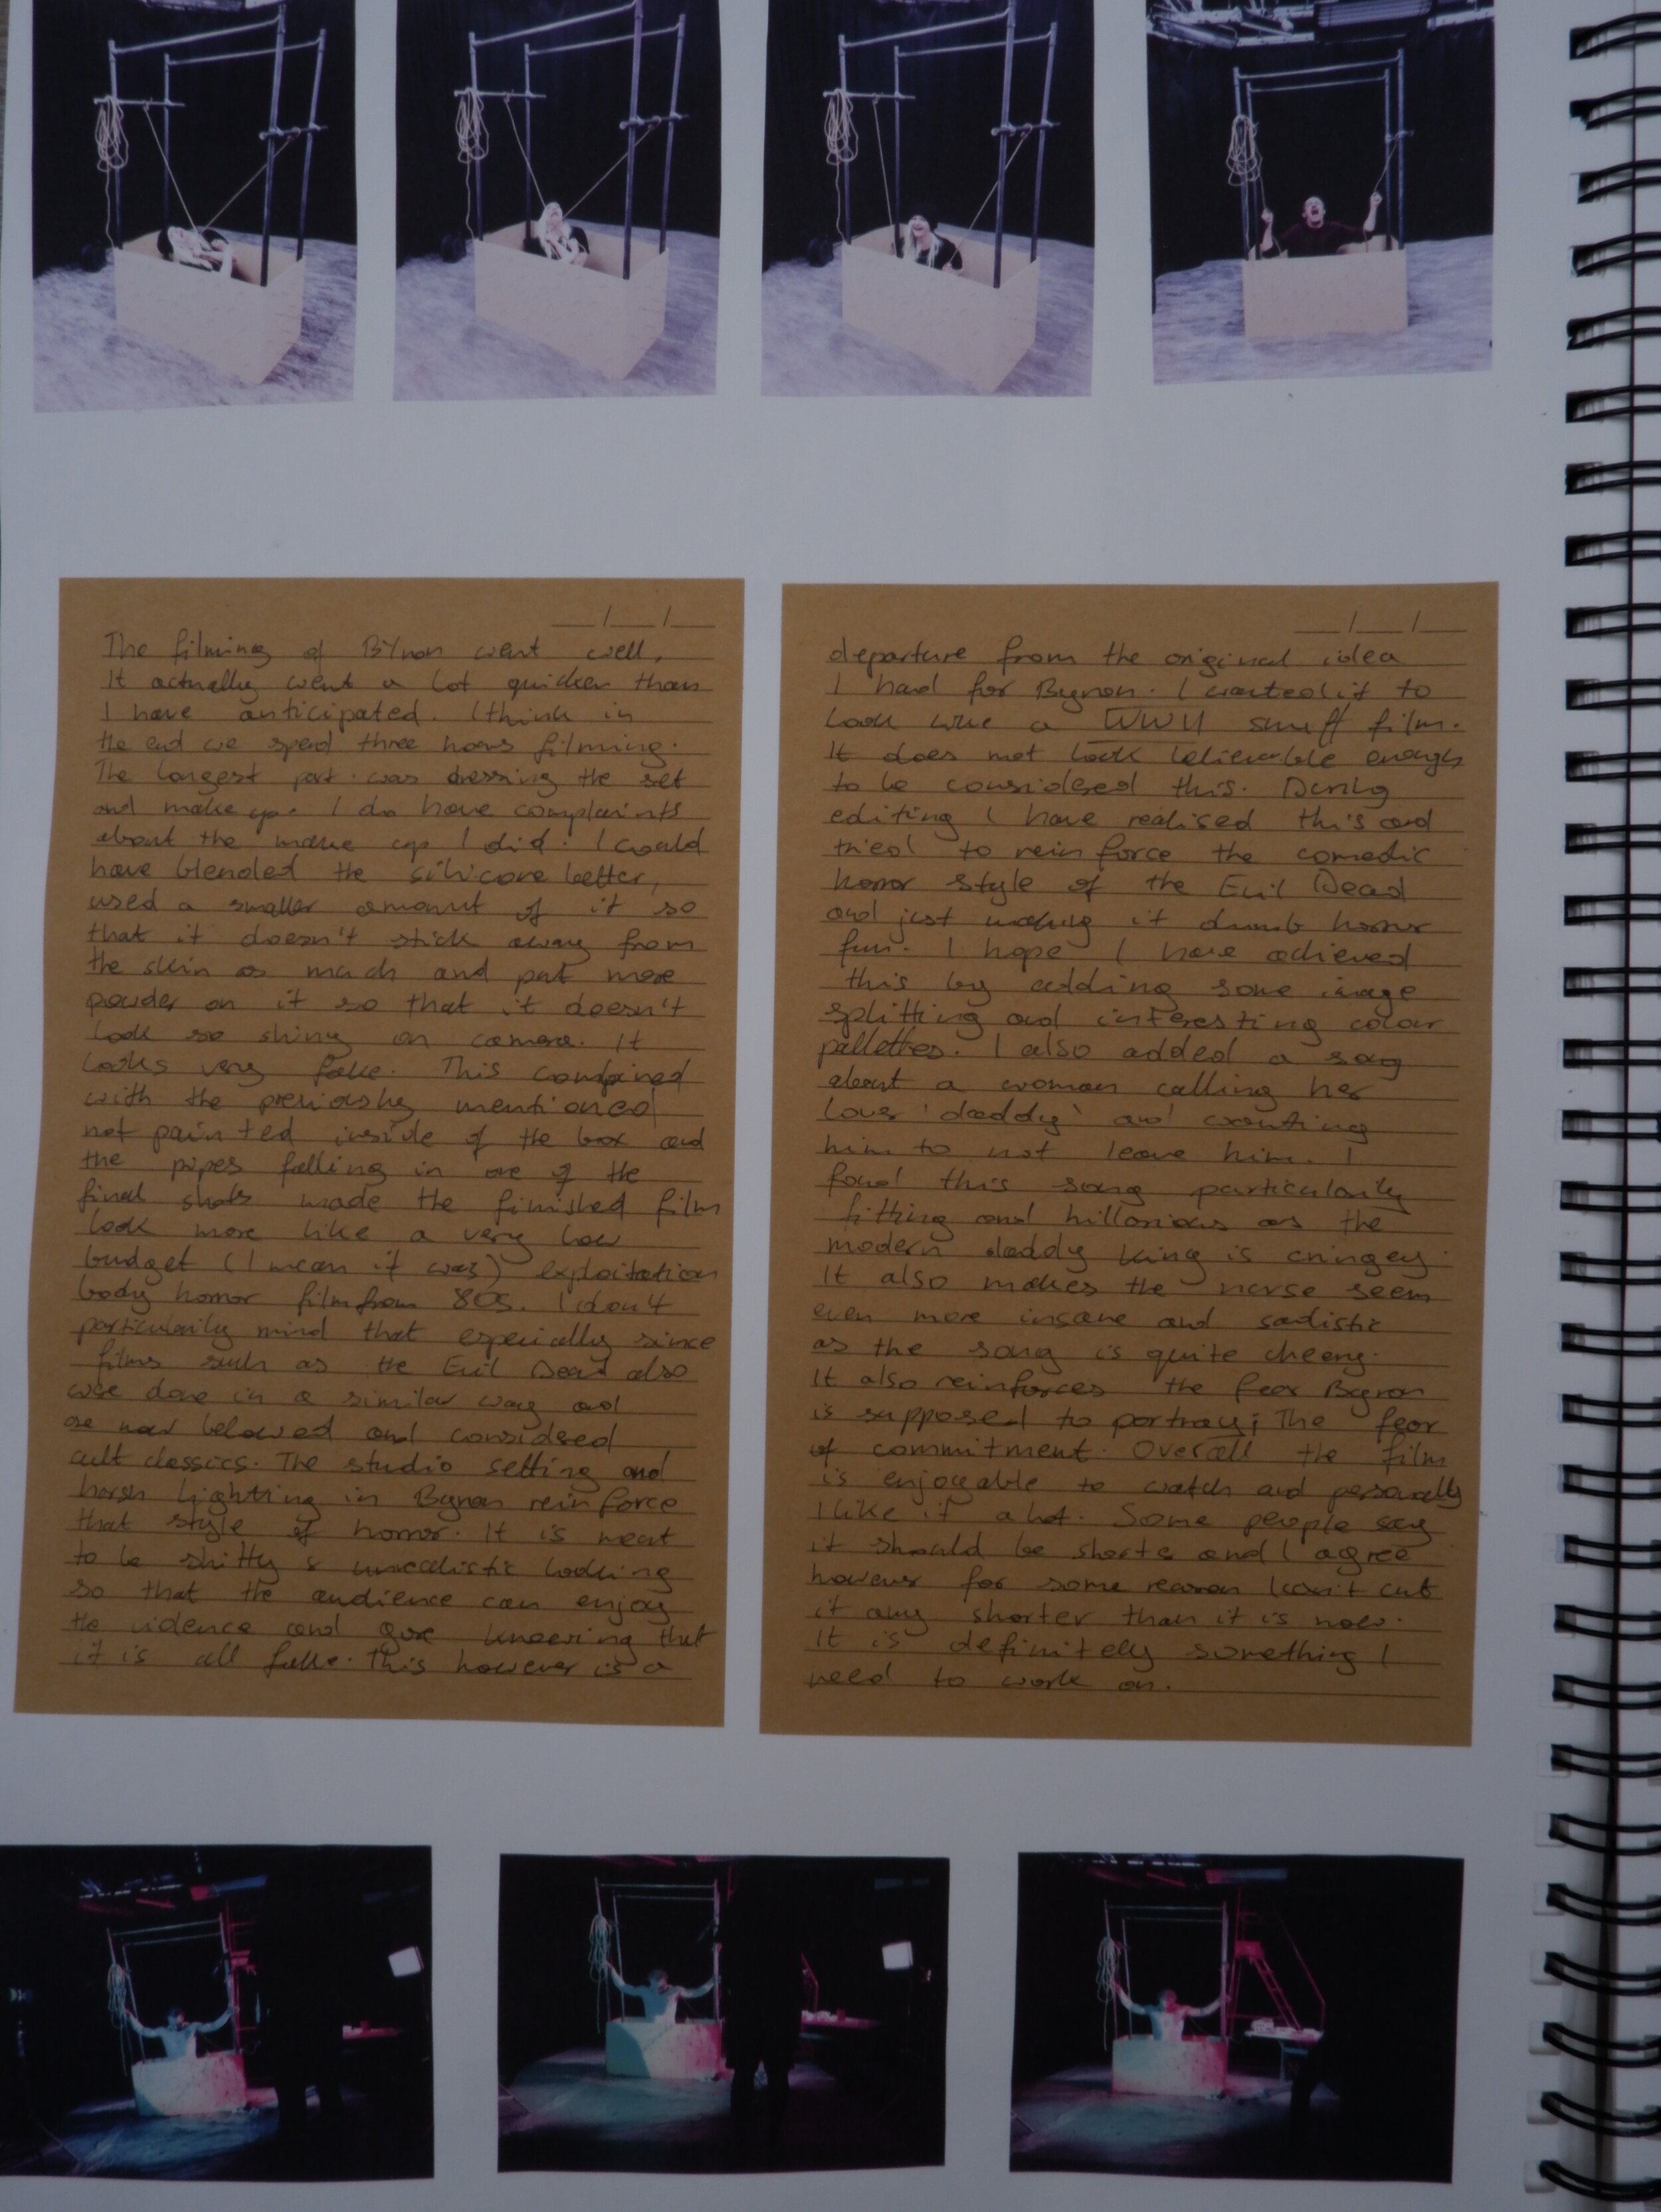 The filming of BYron went well.
It actually went a lot quicker than
I have anticipated. I think in
the end we spend three hours filming.
The longest part was dressing the set
and make up. I do have complaints
about the make up I did. I could
have blended the silicone better,
used a smaller amount of it so
that it doesn't stick away from
the skin as much and put more
powder on it so that it doesn't
look so shiny on camera. It
looks very fake. This combined
with the previously mentioned
not painted inside of the box and
the pipes falling in one of the
final shots made the finished film
look more like a very low
budget (I mean it was) exploitation
body horror film from 80s. I don't
particularily mind that especially since
films such as the Evil Dead also
were done in a similar way and
are now beloved and considered
cult classics. The studio setting and
harsh lighting in Byron reinforce
that style of horror. It is meant
to be shitty & unrealistic looking
so that the audience can enjoy
the violence and gore knowing that
it is all fake. This however is a
departure from the original idea
I had for Byron. I wanted it to
look like a WWII snuff film.
It does not look believable enough
to be considered this. During
editing I have realised this and
tried to reinforce the comedic
horror style of the Evil Dead
and just making it dumb horror
fun. I hope I have achieved
this by adding some image
splitting and interesting colour
pallettes. I also added a song
about a woman calling her
lover 'daddy' and wanting
him to not leave him. I
found this song particularily
fitting and hillarious as the
modern daddy king is cringey.
It also makes the nurse seem
even more insane and sadistic
as the song is quite cheery.
It also reinforces the fear Byron
is supposed to portray; The fear
of commitment. Overall the film
is enjoyable to watch and personally
I like it a lot. Some people say
it should be shorter and I agree
however for some reason I can't cut
it any shorter than it is now.
It is definitely something I
need to work on.